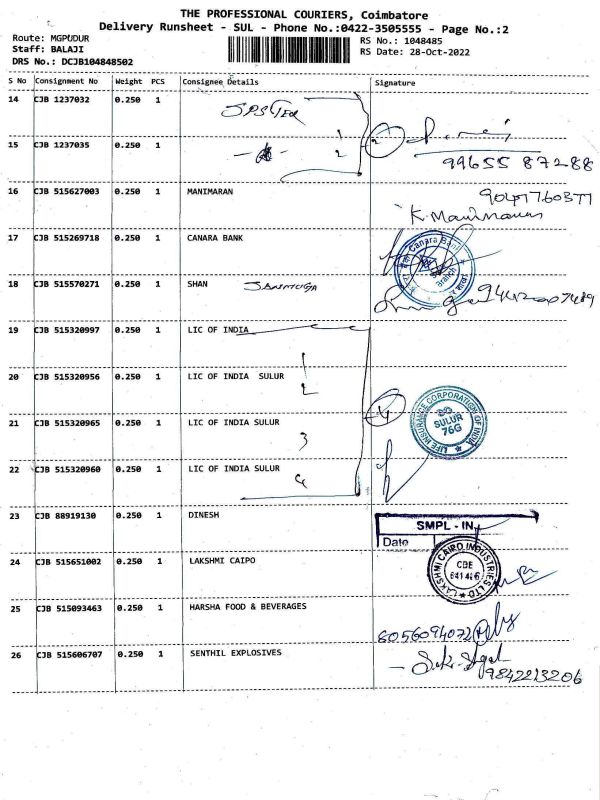 THE PROFESSIONAL COURIERS, Coimbatore
Delivery Runsheet - SUL - Phone No.:0422-3505555 - Page No.:2
Route: MGPUDUR
RS No.: 1048485
Staff: BALAJI
RS Date: 28-Oct-2022
DRS No.: DCJB104848502
S No Consignment No Weight PCS Consignee Details Signature
14 CJB 1237032 0.250 1
15 CJB 1237035 0.250 1
1
2
2
99655 87288
16 CJB 515627003 0.250 1 MANIMARAN
K. Manimaran
17 CJB 515269718 0.250 1 CANARA BANK
Canara Bank
Branch
18 CJB 515570271 0.250 1 SHAN SANMUGA
19 CJB 515320997 0.250 1 LIC OF INDIA
1
20 CJB 515320956 0.250 1 LIC OF INDIA SULUR
2
4
21 CJB 515320965 0.250 1 LIC OF INDIA SULUR
3
LIFE INSURANCE CORPORATION OF INDIA
SULUR
76G
22 CJB 515320960 0.250 1 LIC OF INDIA SULUR
4
23 CJB 88919130 0.250 1 DINESH
SMPL - IN
Date
24 CJB 515651002 0.250 1 LAKSHMI CAIPO
LAKSHMI CAIRO INDUSTRIES LTD
CBE
25 CJB 515093463 0.250 1 HARSHA FOOD & BEVERAGES
8056094072
26 CJB 515606707 0.250 1 SENTHIL EXPLOSIVES
9842213206